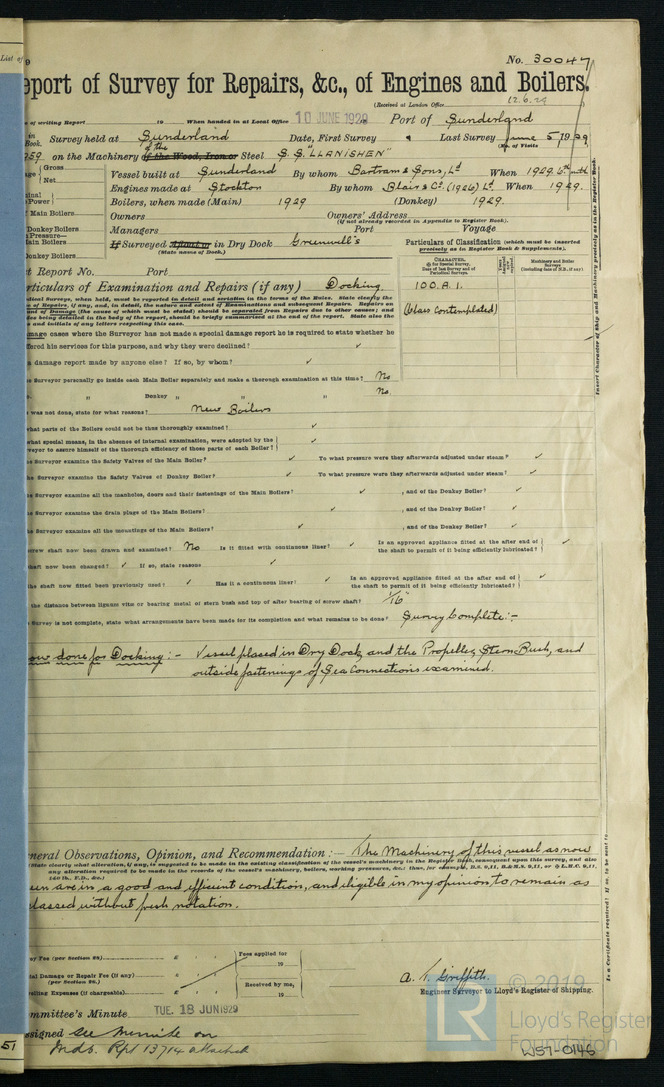 List of
No. 30047
eport of Survey for Repairs, &c., of Engines and Boilers.
(Received at London Office 12.6.29
of writing Report to When handed in at Local Office 10 JUNE 1929 Port of Sunderland
in Book. Survey held at Sunderland Date, First Survey Last Survey June 5 1929
(No. of Visits
959 on the Machinery of the Wood, Iron or Steel S.S. "LLANISHEN"
Gross
Net
Vessel built at Sunderland By whom Bartram & Sons, Ld When 1929
Engines made at Stockton By whom Blair & Co. (1926) Ld. When 1929.
Power
Boilers, when made (Main) 1929 (Donkey) 1929.
Main Boilers
Owners Owners' Address
(if not already recorded in Appendix to Register Book).
Donkey Boilers
Managers Port Voyage
Pressure—
ain Boilers
If Surveyed Afloat or in Dry Dock Greenwell's
(State name of Dock.)
Donkey Boilers
Particulars of Classification (which must be inserted precisely as in Register Book & Supplements).
t Report No. Port
CHARACTER.
100.A.1.
(Class contemplated)
rticulars of Examination and Repairs (if any) Docking.
Insert Character of Ship and Machinery precisely as in the Register Book.
mage cases where the Surveyor has not made a special damage report he is required to state whether he
ffered his services for this purpose, and why they were declined?
damage report made by anyone else? If so, by whom?
Surveyor personally go inside each Main Boiler separately and make a thorough examination at this time? No
„ Donkey „ „ „ No.
was not done, state for what reasons? New Boilers
hat parts of the Boilers could not be thus thoroughly examined?
what special means, in the absence of internal examination, were adopted by the
veyor to assure himself of the thorough efficiency of those parts of each Boiler?
Surveyor examine the Safety Valves of the Main Boiler? To what pressure were they afterwards adjusted under steam?
he Surveyor examine the Safety Valves of Donkey Boiler? To what pressure were they afterwards adjusted under steam?
Surveyor examine all the manholes, doors and their fastenings of the Main Boilers? , and of the Donkey Boiler?
Surveyor examine the drain plugs of the Main Boilers? , and of the Donkey Boiler?
Surveyor examine all the mountings of the Main Boilers? , and of the Donkey Boiler?
crew shaft now been drawn and examined? No Is it fitted with continuous liner? Is an approved appliance fitted at the after end of the shaft to permit of it being efficiently lubricated?
haft now been changed? If so, state reasons
the shaft now fitted been previously used? Has it a continuous liner? Is an approved appliance fitted at the after end of the shaft to permit of it being efficiently lubricated?
the distance between lignum vitæ or bearing metal of stern bush and top of after bearing of screw shaft? 1/16"
Survey is not complete, state what arrangements have been made for its completion and what remains to be done? Survey Complete:-
ow done for Docking:- Vessel placed in Dry Dock, and the Propeller, Stern Bush, and
outside fastenings of Sea Connections examined.
neral Observations, Opinion, and Recommendation:— The Machinery of this vessel as now
(State clearly what alteration, if any, is suggested to be made in the existing classification of the vessel's machinery in the Register Book, consequent upon this survey, and also
any alteration required to be made in the records of the vessel's machinery, boilers, working pressures, &c.
seen are in a good and efficient condition, and eligible in my opinion to remain as
classed without fresh notation.
Is a Certificate required? If so, to be sent to
ey Fee (per Section 29) £ Fees applied for
19
ial Damage or Repair Fee (if any) £
(per Section 29.)
Received by me,
velling Expenses (if chargeable). £ 19
A. V. Griffith.
Engineer Surveyor to Lloyd's Register of Shipping.
© 2019
ommittee's Minute TUE. 18 JUN 1929
ssigned See minute on
Mds. Rpt 13714 attached
51
LR
Lloyd's Register
Foundation
W57-0146